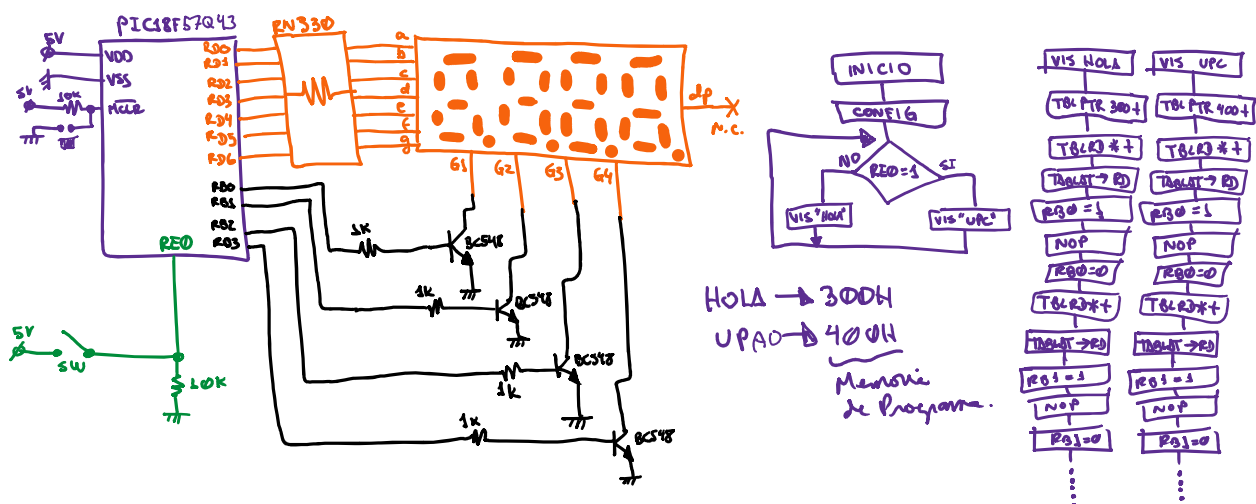 PIC18F57Q43
5V
VDD
VSS
5V
10K
MCLR
RD0
RD1
RD2
RD3
RD4
RD5
RD6
RB0
RB1
RB2
RB3
RE0
RN330
a
b
c
d
e
f
g
dp
N.C.
G1
G2
G3
G4
1K
BC548
1K
BC548
1K
BC548
1K
BC548
5V
SW
10K
INICIO
CONFIG
NO
RE0=1
SI
VIS "HOLA"
VIS "UPC"
HOLA → 300H
UPAO → 400H
Memoria
de Programa.
VIS HOLA
TBLPTR 300+
TBLRD*+
TABLAT→RD
RB0=1
NOP
RB0=0
TBLRD*+
TABLAT→RD
RB1=1
NOP
RB1=0
VIS UPC
TBLPTR 400+
TBLRD*+
TABLAT→RD
RB0=1
NOP
RB0=0
TBLRD*+
TABLAT→RD
RB1=1
NOP
RB1=0